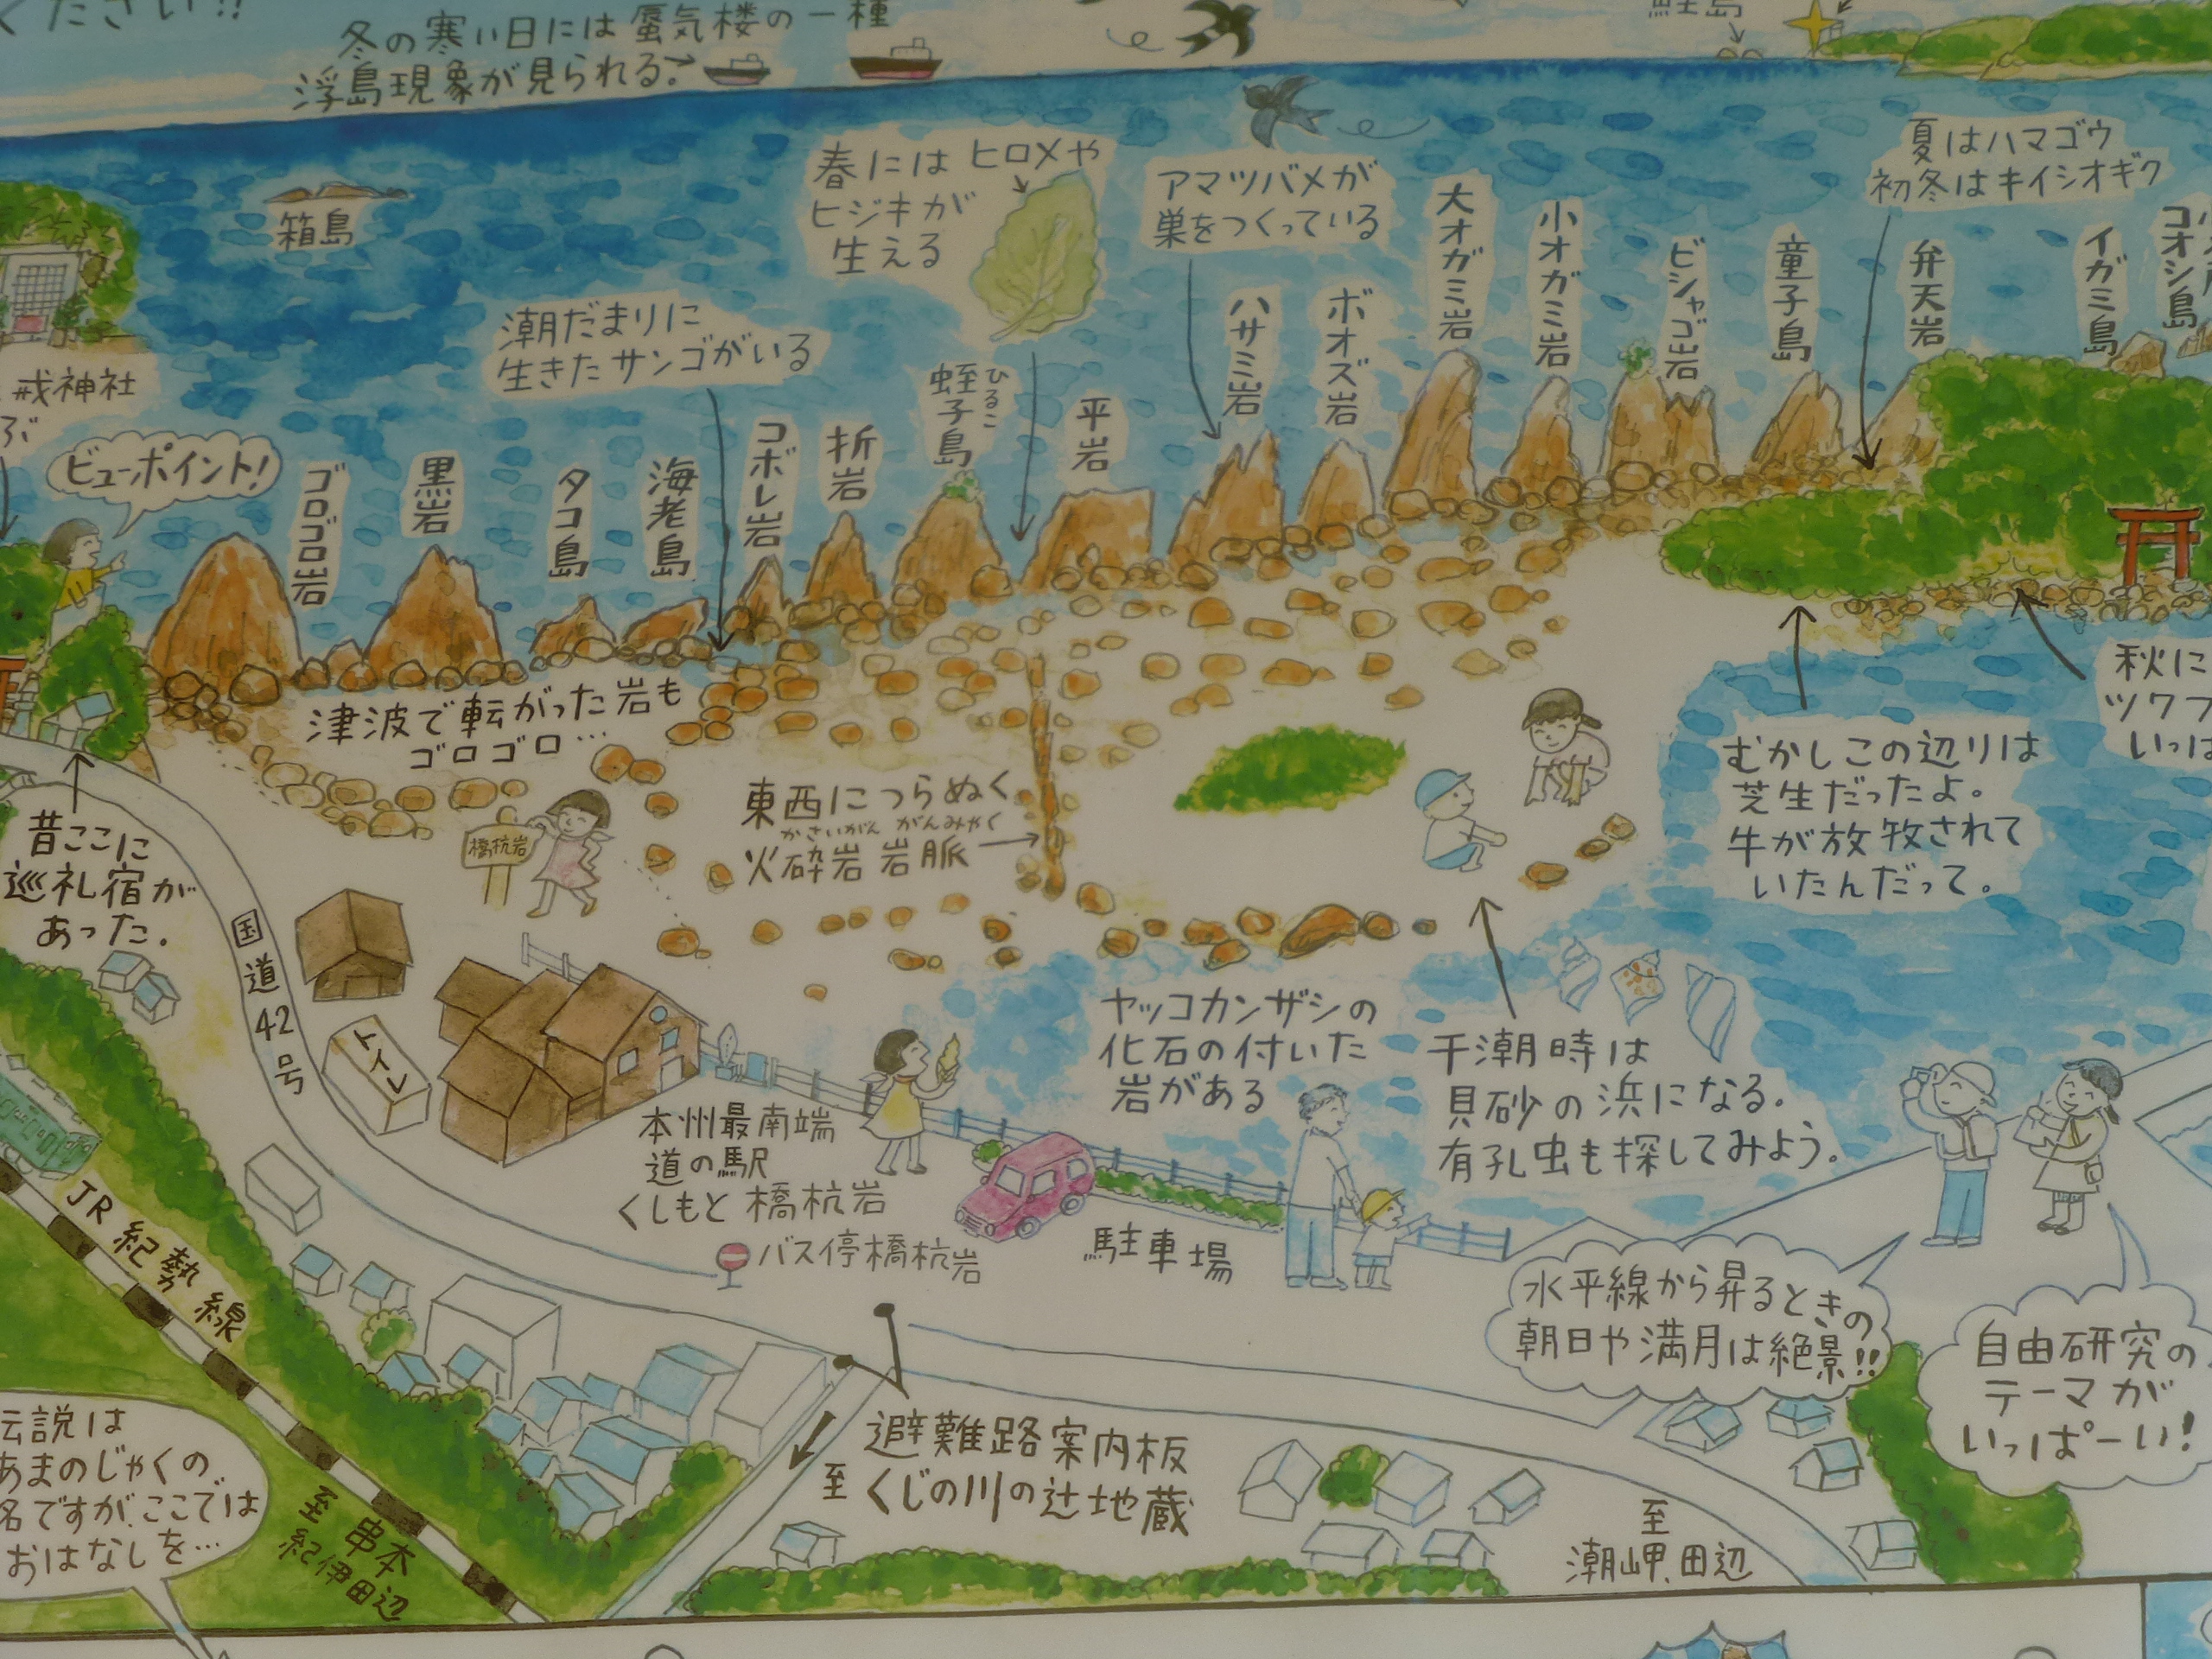 ください!!
冬の寒い日には蜃気楼の一種
浮島現象が見られる。
箱島
春にはヒロメや
ヒジキが
生える
アマツバメが
巣をつくっている
夏はハマゴウ
初冬はキイシオギク
潮だまりに
生きたサンゴがいる
戎神社
ビューポイント!
ゴロゴロ岩
黒岩
タコ島
海老島
コボレ岩
折岩
蛭子島
ひるこ
平岩
ハサミ岩
ボオズ岩
大オガミ岩
小オガミ岩
ビシャゴ岩
童子島
弁天岩
イガミ島
コオシ島
津波で転がった岩も
ゴロゴロ…
橋杭岩
東西につらぬく
かさいがん がんみゃく
火砕岩岩脈
むかしこの辺りは
芝生だったよ。
牛が放牧されて
いたんだって。
秋に
ツワブ
いっぱ
昔ここに
巡礼宿が
あった。
国道42号
トイレ
本州最南端
道の駅
くしもと橋杭岩
バス停橋杭岩
駐車場
ヤッコカンザシの
化石の付いた
岩がある
干潮時は
貝砂の浜になる。
有孔虫も探してみよう。
水平線から昇るときの
朝日や満月は絶景!!
自由研究の
テーマが
いっぱーい!
JR紀勢線
至串本
紀伊田辺
伝説は
あまのじゃくの
名ですが、ここでは
おはなしを…
避難路案内板
至くじの川の辻地蔵
至
潮岬、田辺